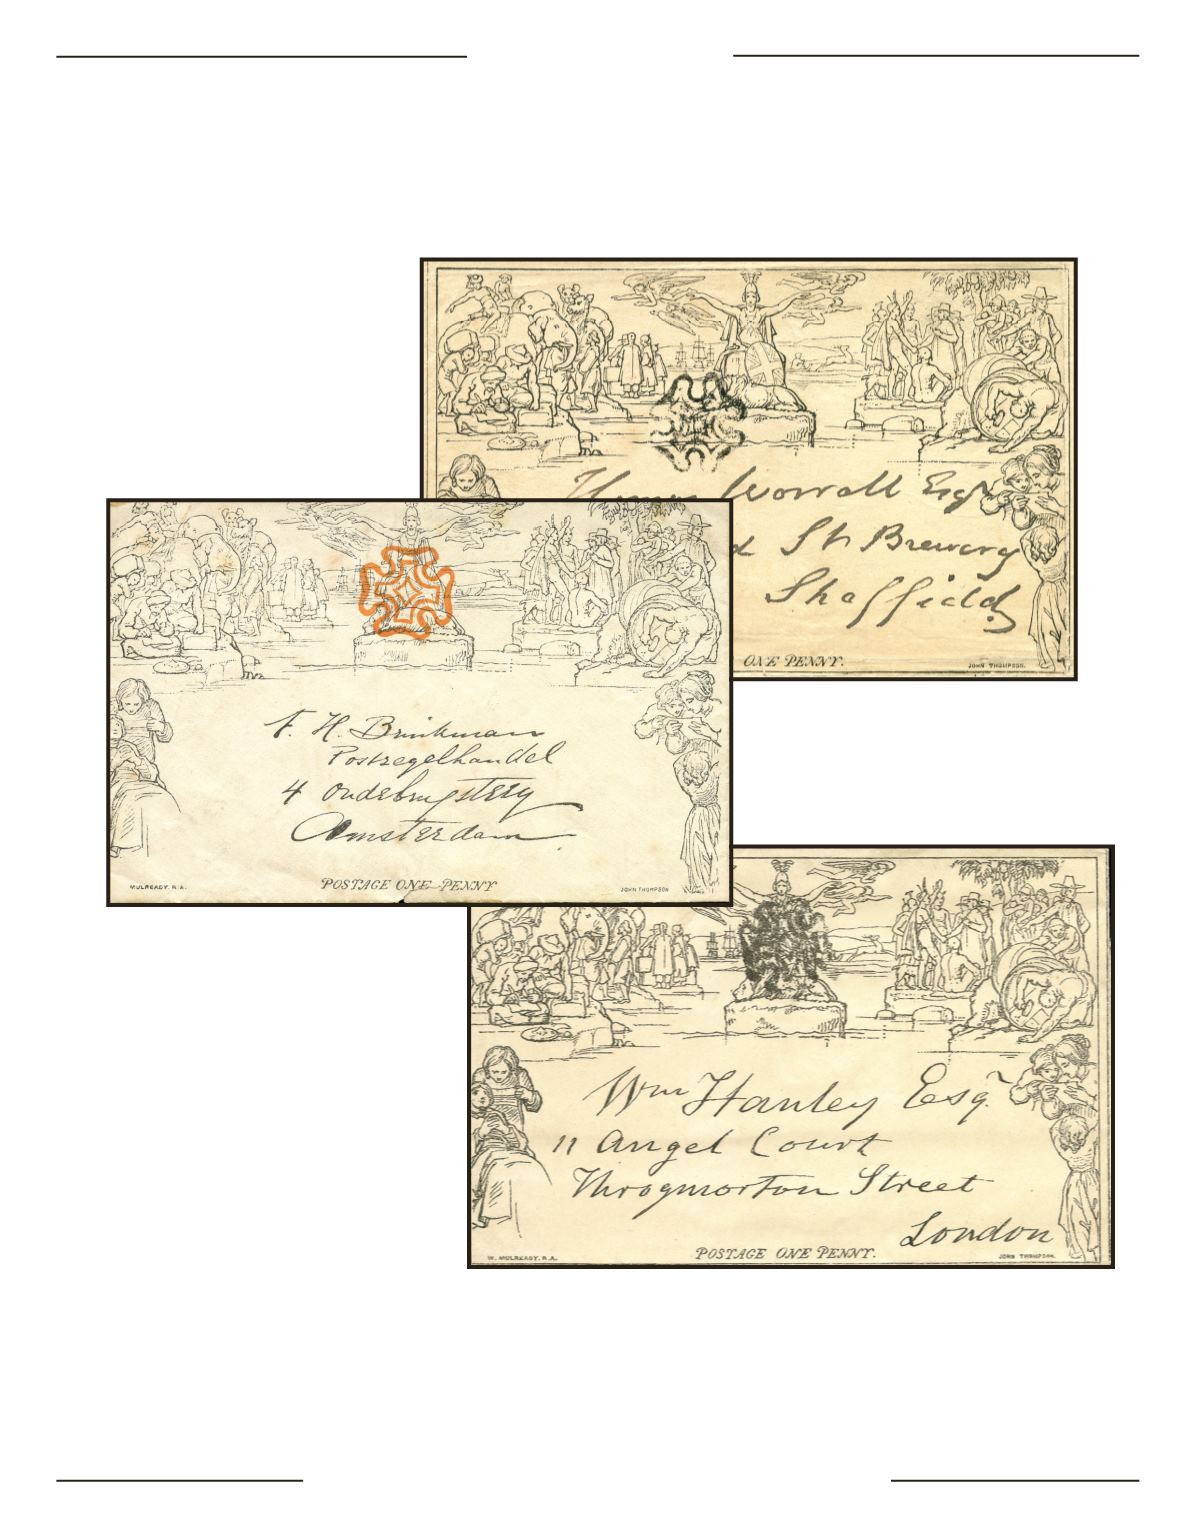 Worrall Esqr
St Brewery
Sheffield
ONE PENNY.
JOHN THOMPSON.
F. H. Brinkman
Postzegelhandel
4 Oudebrugsteeg
Amsterdam.
MULREADY. R.A.
POSTAGE ONE PENNY
JOHN THOMPSON
Wm Hanley Esqr
11 Angel Court
Throgmorton Street
London
W. MULREADY. R.A.
POSTAGE ONE PENNY.
JOHN THOMPSON.